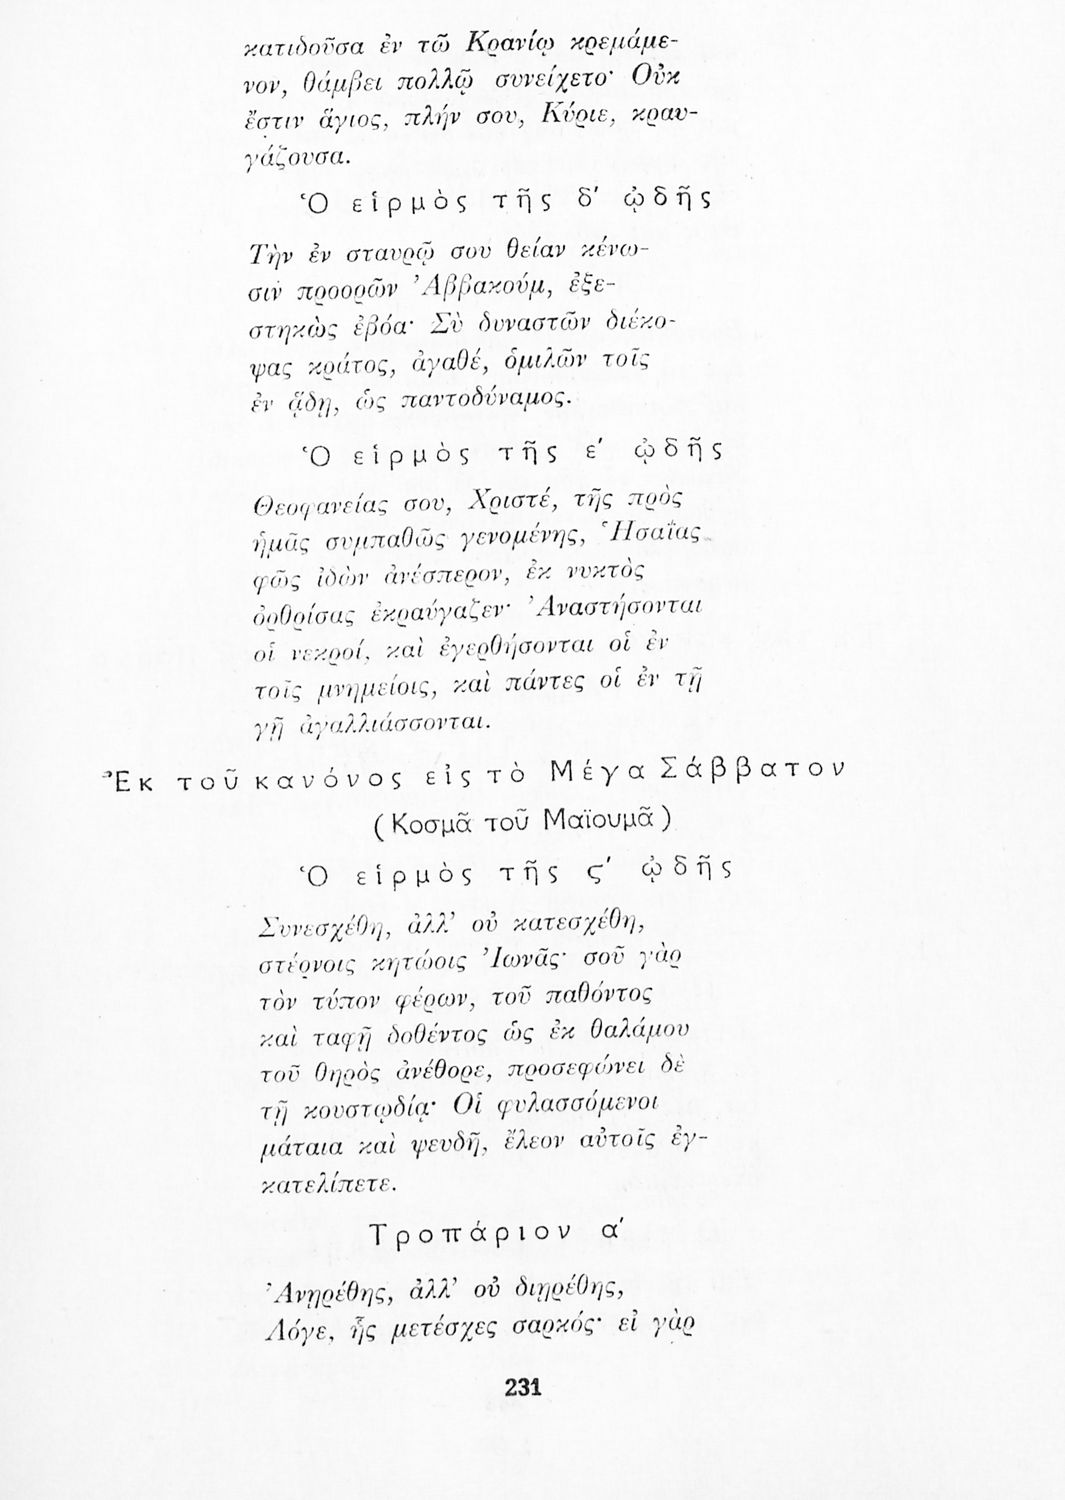 κατιδοῦσα ἐν τῶ Κρανίῳ κρεμάμε-
νον, θάμβει πολλῷ συνείχετο· Οὐκ
ἔστιν ἅγιος, πλήν σου, Κύριε, κραυ-
γάζουσα.
Ὁ εἱρμὸς τῆς δ΄ ᾠδῆς
Τὴν ἐν σταυρῷ σου θείαν κένω-
σιν προορῶν Ἀββακούμ, ἐξε-
στηκὼς ἐβόα· Σὺ δυναστῶν διέκο-
ψας κράτος, ἀγαθέ, ὁμιλῶν τοῖς
ἐν ᾅδῃ, ὡς παντοδύναμος.
Ὁ εἱρμὸς τῆς ε΄ ᾠδῆς
Θεοφανείας σου, Χριστέ, τῆς πρὸς
ἡμᾶς συμπαθῶς γενομένης, Ἡσαΐας
φῶς ἰδὼν ἀνέσπερον, ἐκ νυκτὸς
ὀρθρίσας ἐκραύγαζεν· Ἀναστήσονται
οἱ νεκροί, καὶ ἐγερθήσονται οἱ ἐν
τοῖς μνημείοις, καὶ πάντες οἱ ἐν τῇ
γῇ ἀγαλλιάσσονται.
Ἐκ τοῦ κανόνος εἰς τὸ Μέγα Σάββατον
(Κοσμᾶ τοῦ Μαϊουμᾶ)
Ὁ εἱρμὸς τῆς ς΄ ᾠδῆς
Συνεσχέθη, ἀλλ' οὐ κατεσχέθη,
στέρνοις κητώοις Ἰωνᾶς· σοῦ γὰρ
τὸν τύπον φέρων, τοῦ παθόντος
καὶ ταφῇ δοθέντος ὡς ἐκ θαλάμου
τοῦ θηρὸς ἀνέθορε, προσεφώνει δὲ
τῇ κουστῳδίᾳ· Οἱ φυλασσόμενοι
μάταια καὶ ψευδῆ, ἔλεον αὐτοῖς ἐγ-
κατελίπετε.
Τροπάριον α΄
Ἀνῃρέθης, ἀλλ' οὐ διῃρέθης,
Λόγε, ἧς μετέσχες σαρκός· εἰ γὰρ
231